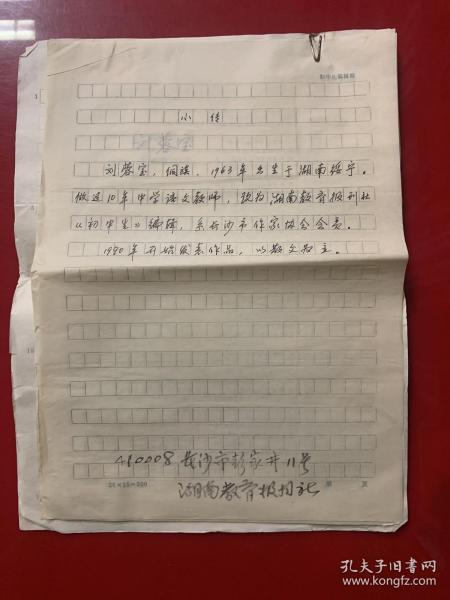 小传
刘蓉宝，侗族，1963年出生于湖南绥宁。
做过10年中学语文教师，现为湖南教育报刊社
《初中生》编辑，系长沙市作家协会会员。
1990年开始发表作品，以散文为主。
410008 长沙市彭家井11号
湖南教育报刊社
页
孔夫子旧书网
www.kongfz.com